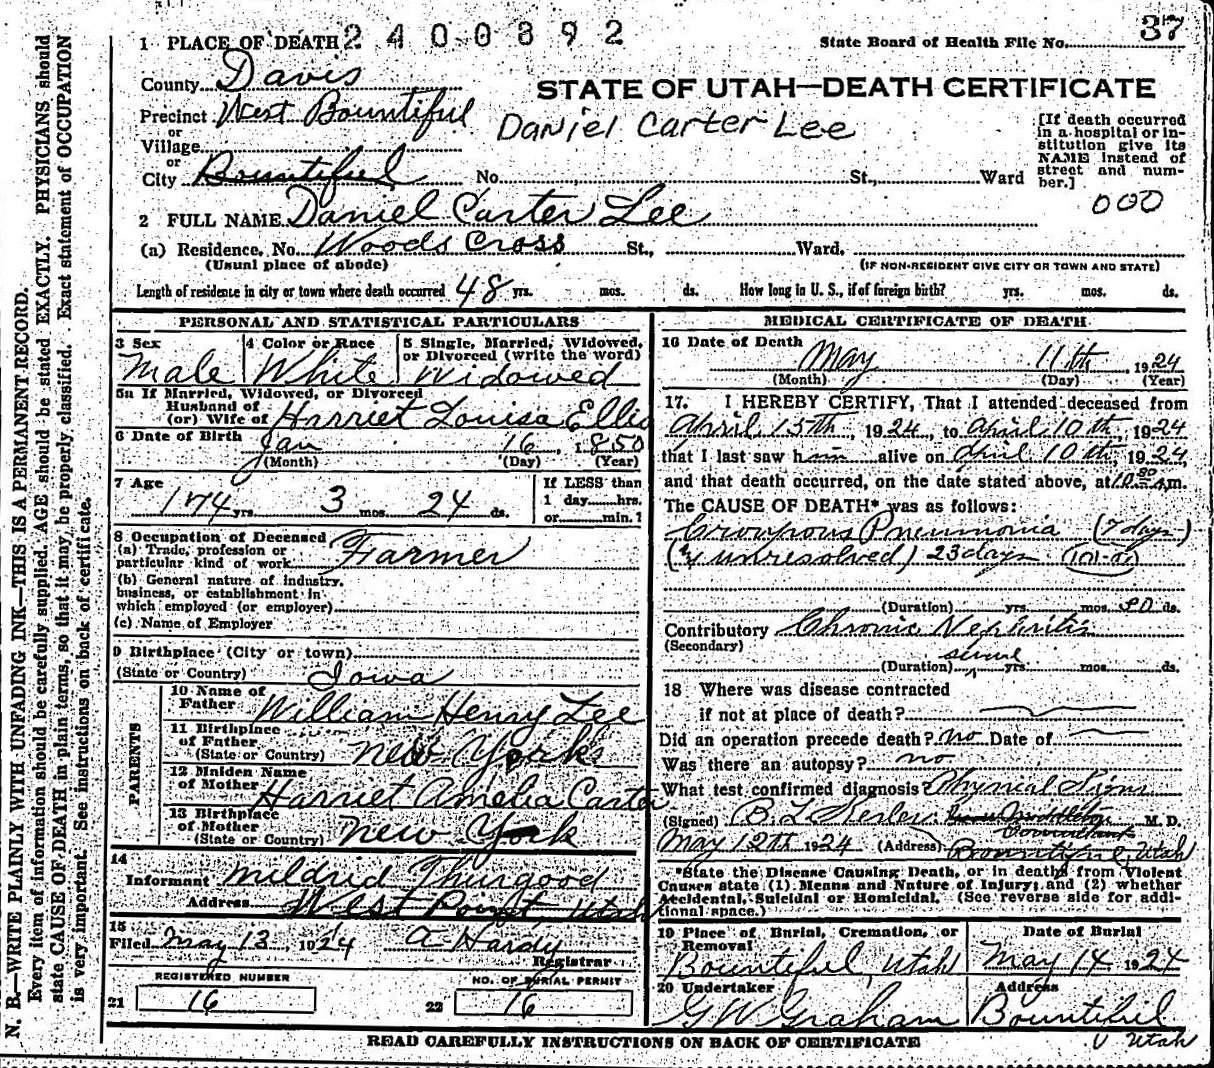 37
2400892
1 PLACE OF DEATH
State Board of Health File No.
County Davis
STATE OF UTAH—DEATH CERTIFICATE
Precinct West Bountiful
Daniel Carter Lee
or
Village
or
City Bountiful No. St., Ward
[If death occurred
in a hospital or in-
stitution give its
NAME instead of
street and num-
ber.]
000
2 FULL NAME Daniel Carter Lee
(a) Residence, No. Woods Cross St., Ward,
(Usual place of abode) (IF NON-RESIDENT GIVE CITY OR TOWN AND STATE)
Length of residence in city or town where death occurred 48 yrs. mos. ds. How long in U. S., if of foreign birth? yrs. mos. ds.
PERSONAL AND STATISTICAL PARTICULARS
3 Sex
Male
4 Color or Race
White
5 Single, Married, Widowed,
or Divorced (write the word)
Widowed
5a If Married, Widowed, or Divorced
Husband of
(or) Wife of Harriet Louisa Ellis
6 Date of Birth
Jan 16, 1850
(Month) (Day) (Year)
7 Age
74 yrs. 3 mos. 24 ds.
If LESS than
1 day hrs.
or min.?
8 Occupation of Deceased
(a) Trade, profession or
particular kind of work Farmer
(b) General nature of industry,
business, or establishment in
which employed (or employer)
(c) Name of Employer
9 Birthplace (City or town)
(State or Country) Iowa
PARENTS
10 Name of
Father William Henry Lee
11 Birthplace
of Father
(State or Country) New York
12 Maiden Name
of Mother Harriet Amelia Carter
13 Birthplace
of Mother
(State or Country) New York
14
Informant Mildrid Thurgood
Address West Point, Utah
15
Filed May 13, 1924 A Hardy
Registrar
REGISTERED NUMBER
21 16
NO. OF BURIAL PERMIT
22 16
MEDICAL CERTIFICATE OF DEATH
16 Date of Death
May 11th, 1924
(Month) (Day) (Year)
17. I HEREBY CERTIFY, That I attended deceased from
April 15th, 1924, to April 10th, 1924
that I last saw him alive on April 10th, 1924,
and that death occurred, on the date stated above, at m.
The CAUSE OF DEATH* was as follows:
Croupous Pneumonia (7 days)
unresolved) 23 days
(Duration) yrs. mos. ds.
Contributory Chronic Nephritis
(Secondary)
(Duration) yrs. mos. ds.
18 Where was disease contracted
if not at place of death?
Did an operation precede death? no Date of
Was there an autopsy? no
What test confirmed diagnosis? Physical Signs
(Signed) B. L. M. D.
May 12th 1924 (Address) Bountiful, Utah
*State the Disease Causing Death, or in deaths from Violent
Causes state (1) Means and Nature of Injury; and (2) whether
Accidental, Suicidal or Homicidal. (See reverse side for addi-
tional space.)
19 Place of Burial, Cremation, or
Removal
Bountiful, Utah
Date of Burial
May 14 1924
20 Undertaker
G W Graham
Address
Bountiful
Utah
READ CAREFULLY INSTRUCTIONS ON BACK OF CERTIFICATE
N. B.—WRITE PLAINLY WITH UNFADING INK—THIS IS A PERMANENT RECORD.
Every item of information should be carefully supplied. AGE should be stated EXACTLY. PHYSICIANS should
state CAUSE OF DEATH in plain terms, so that it may be properly classified. Exact statement of OCCUPATION
is very important. See instructions on back of certificate.